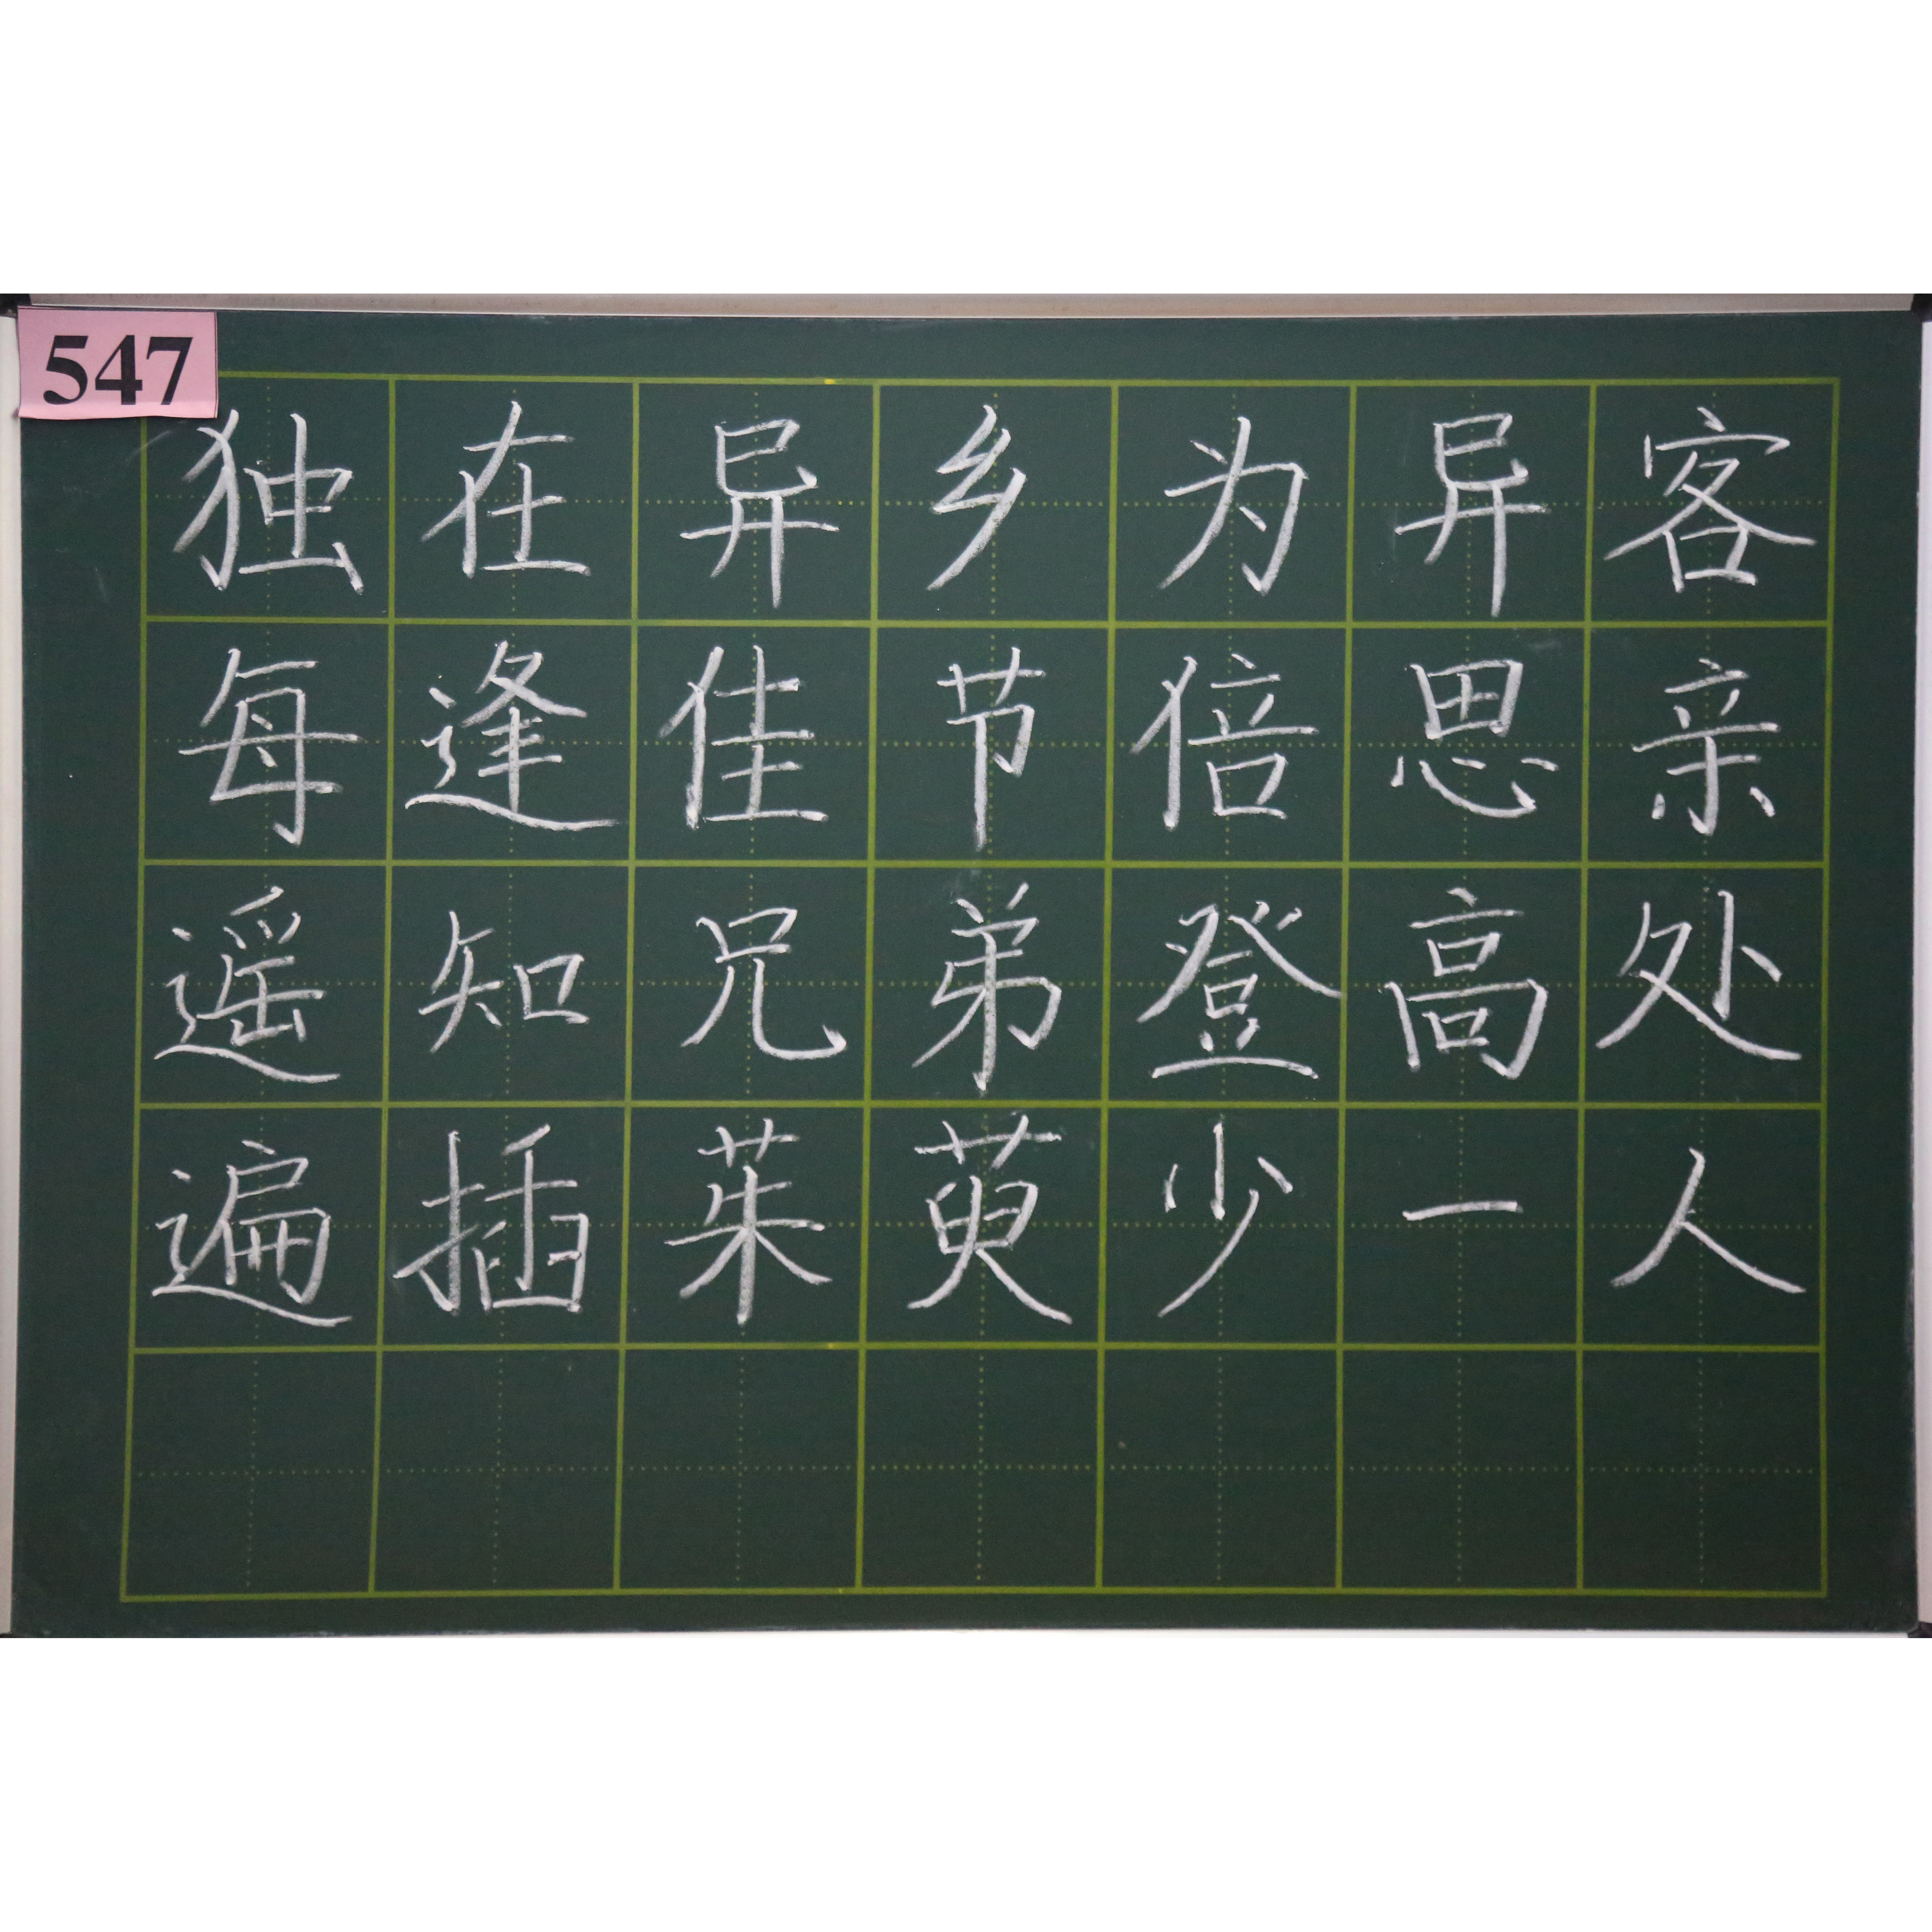 547
独在异乡为异客
每逢佳节倍思亲
遥知兄弟登高处
遍插茱萸少一人